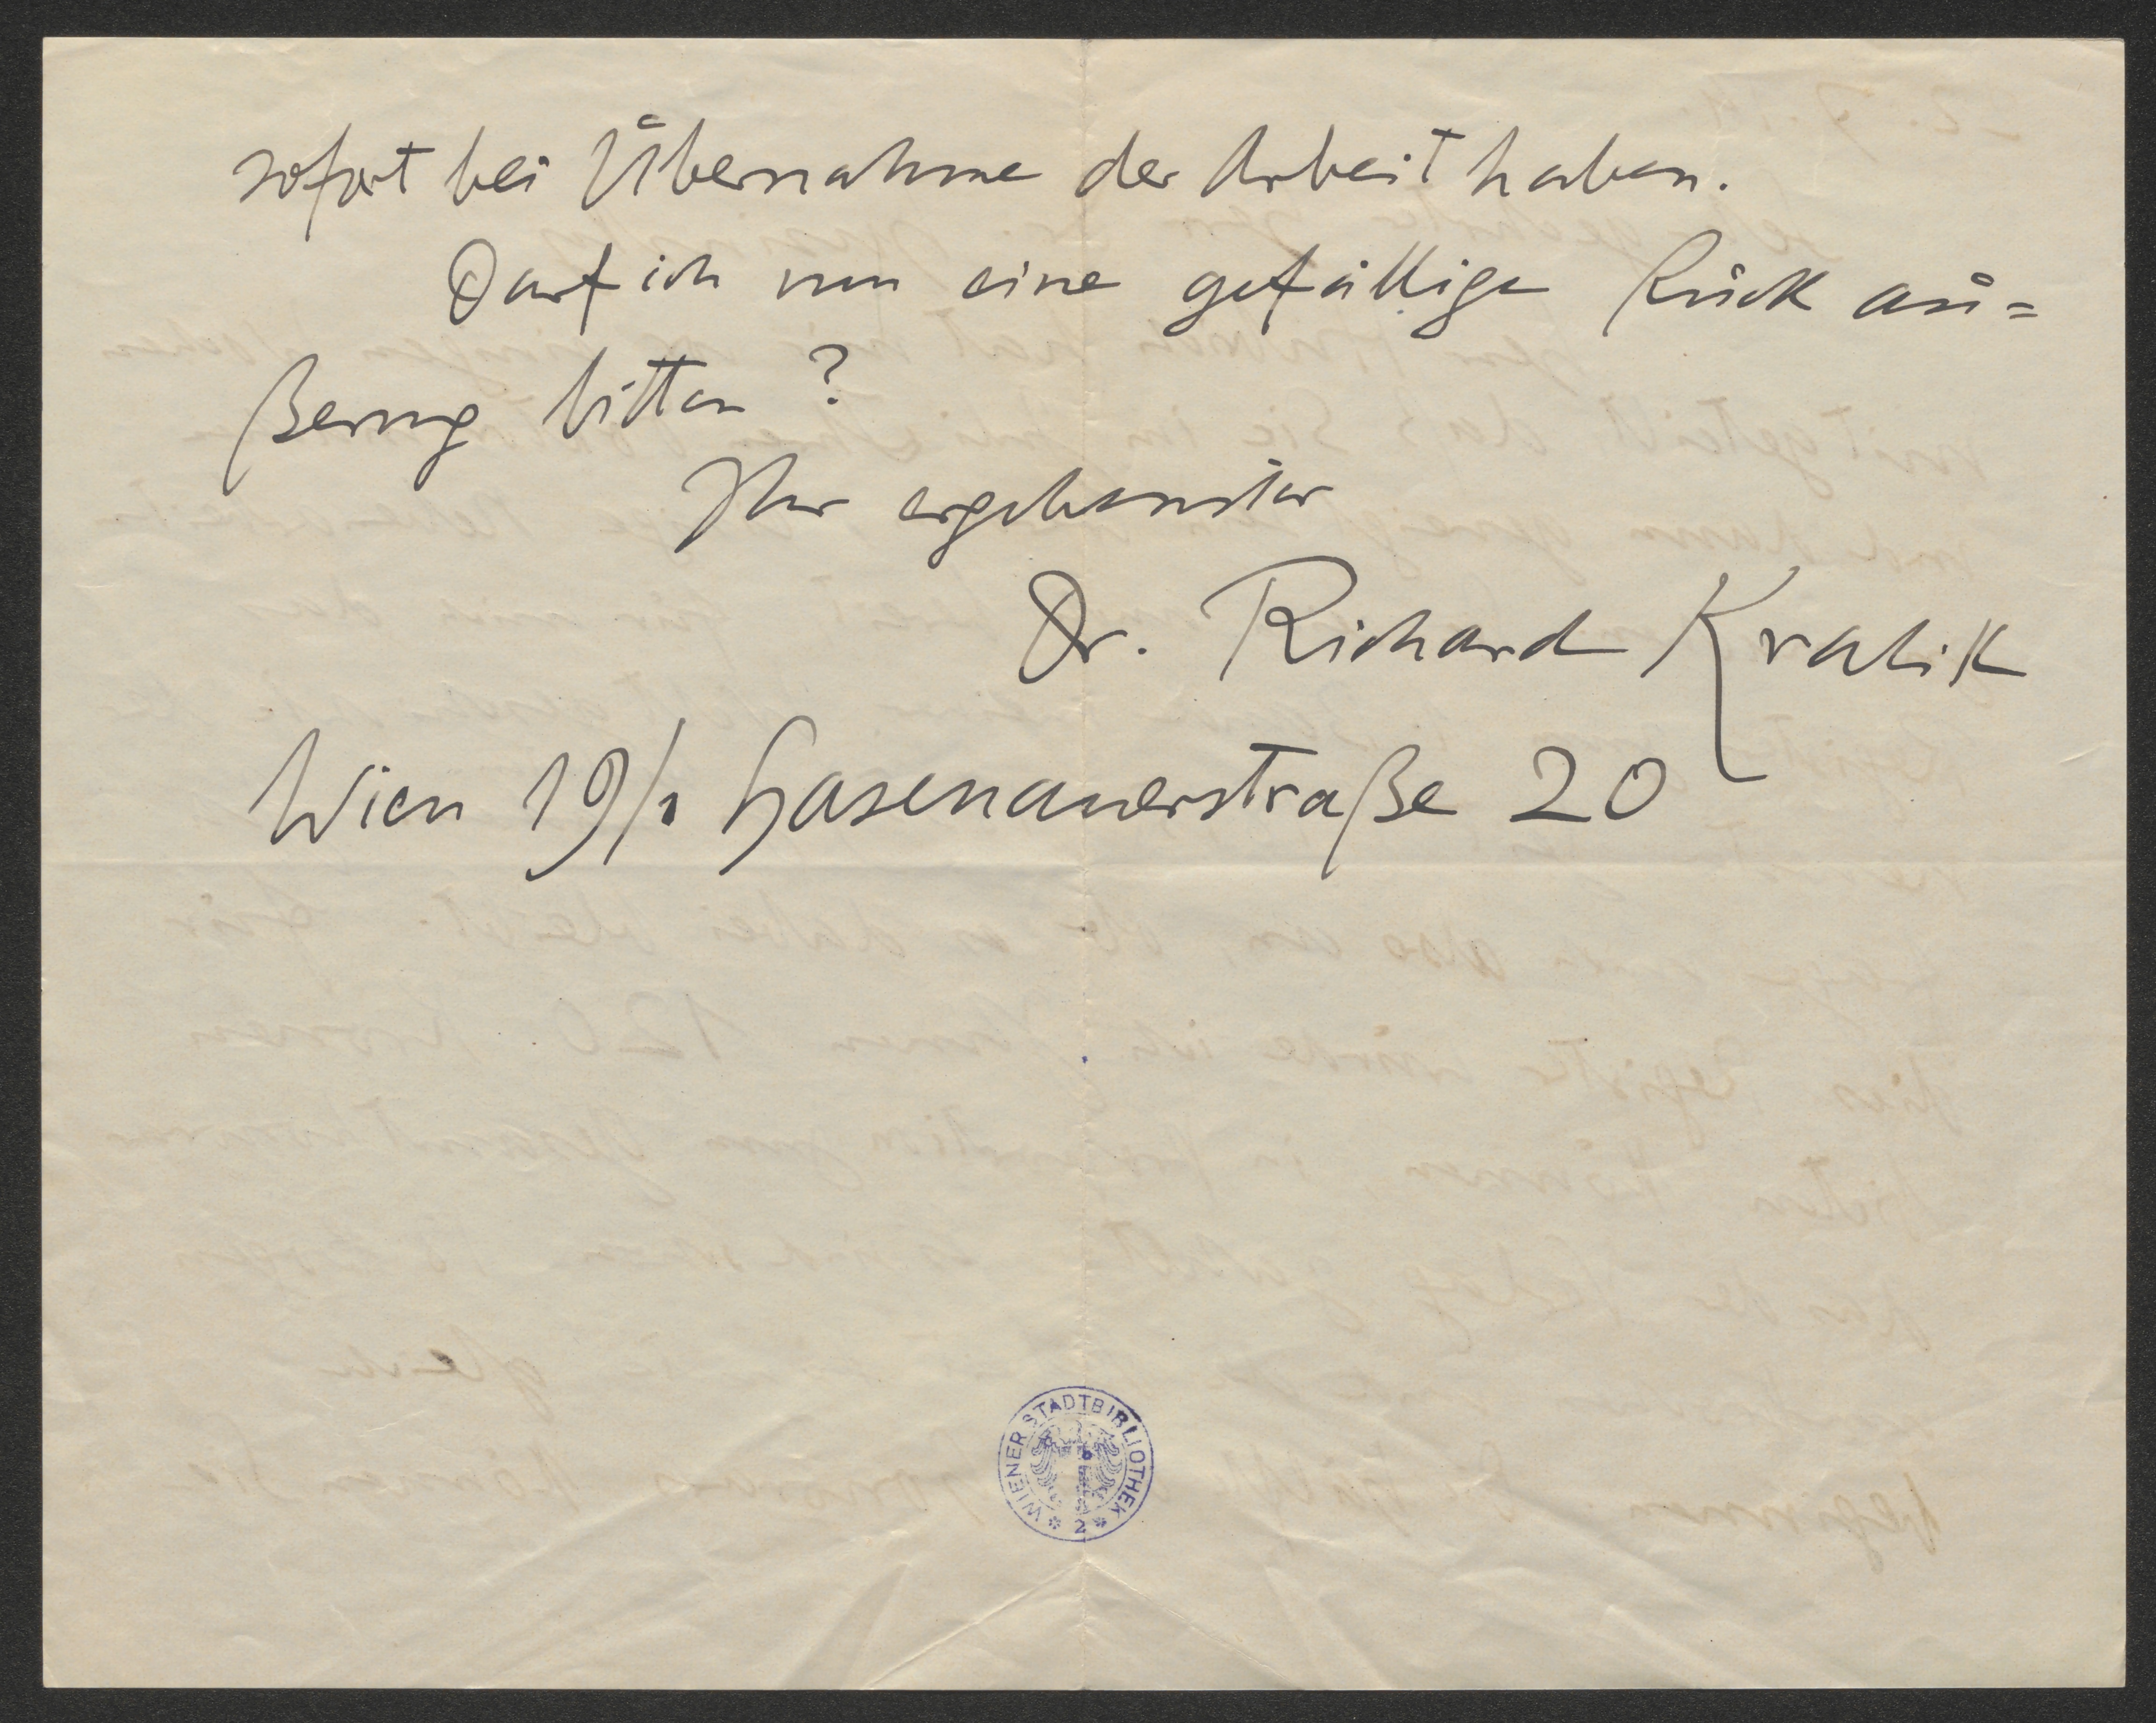 sofort bei Übernahme der Arbeit haben.
Darf ich um eine gefällige Rück äu=
ßerung bitten?
Ihr ergebenster
Dr. Richard Kralik
Wien 19/1 Hasenauerstraße 20
WIENER STADTBIBLIOTHEK
* 2 *